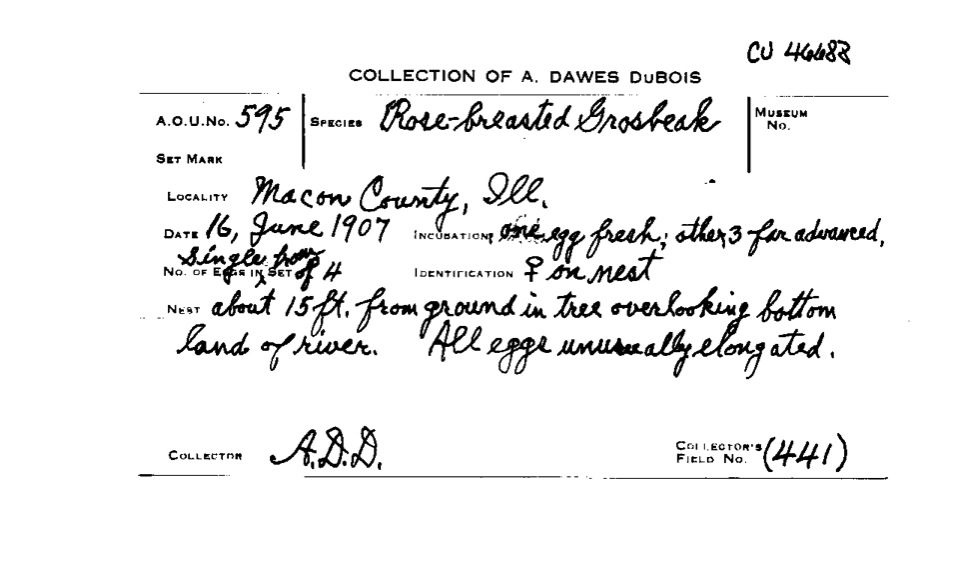 CU 46688
COLLECTION OF A. DAWES DuBOIS
A.O.U.No. 595 SPECIES Rose-breasted Grosbeak MUSEUM No.
SET MARK
LOCALITY Macon County, Ill.
DATE 16, June 1907 INCUBATION, one egg fresh; other 3 far advanced,
Single from
No. OF EGGS IN SET of 4 IDENTIFICATION ♀ on nest
NEST about 15 ft. from ground in tree overlooking bottom
land of river. All eggs unusually elongated.
COLLECTOR A.D.D. COLLECTOR'S FIELD No. (441)